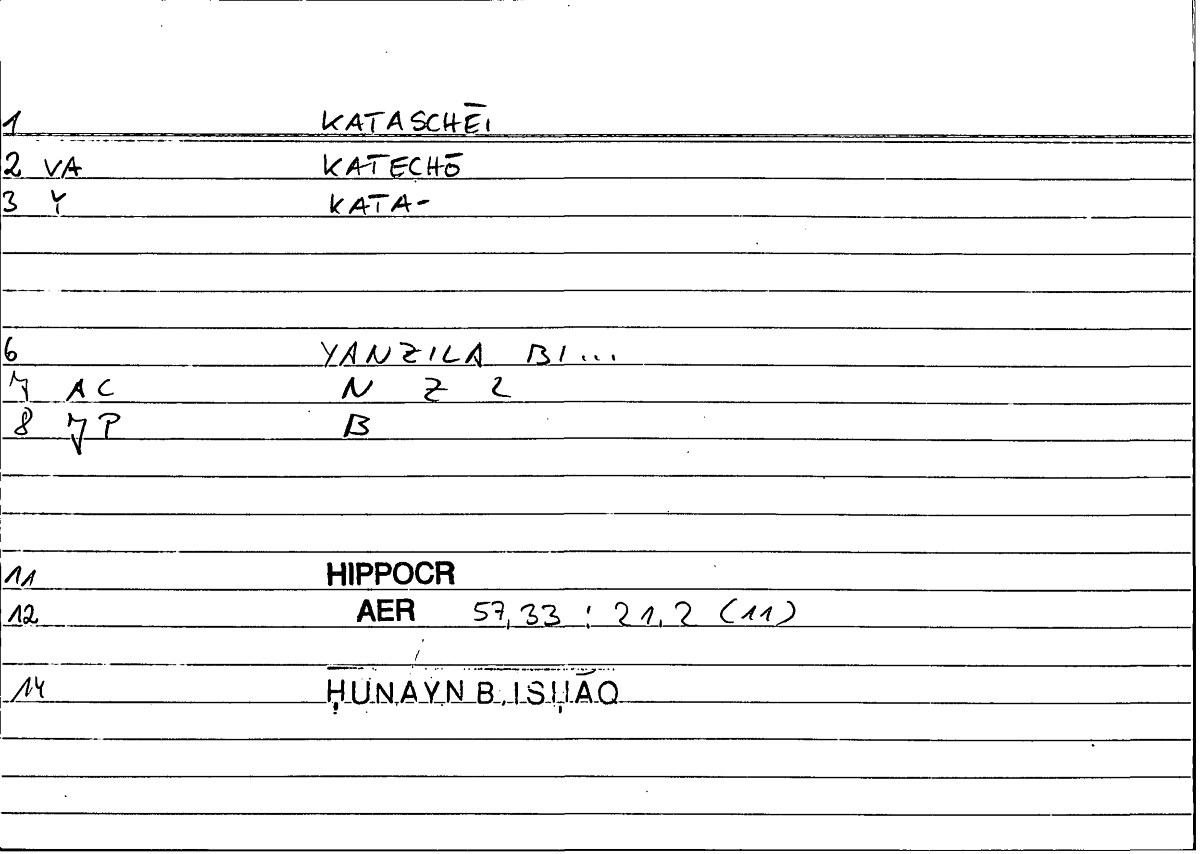 1 KATASCHĒI
2 VA KATECHŌ
3 Y KATA-
6 YANZILA BI...
7 AC N Z L
8 7P B
11 HIPPOCR
12 AER 57,33 : 21,2 (11)
14 ḤUNAYN B. ISḤĀQ